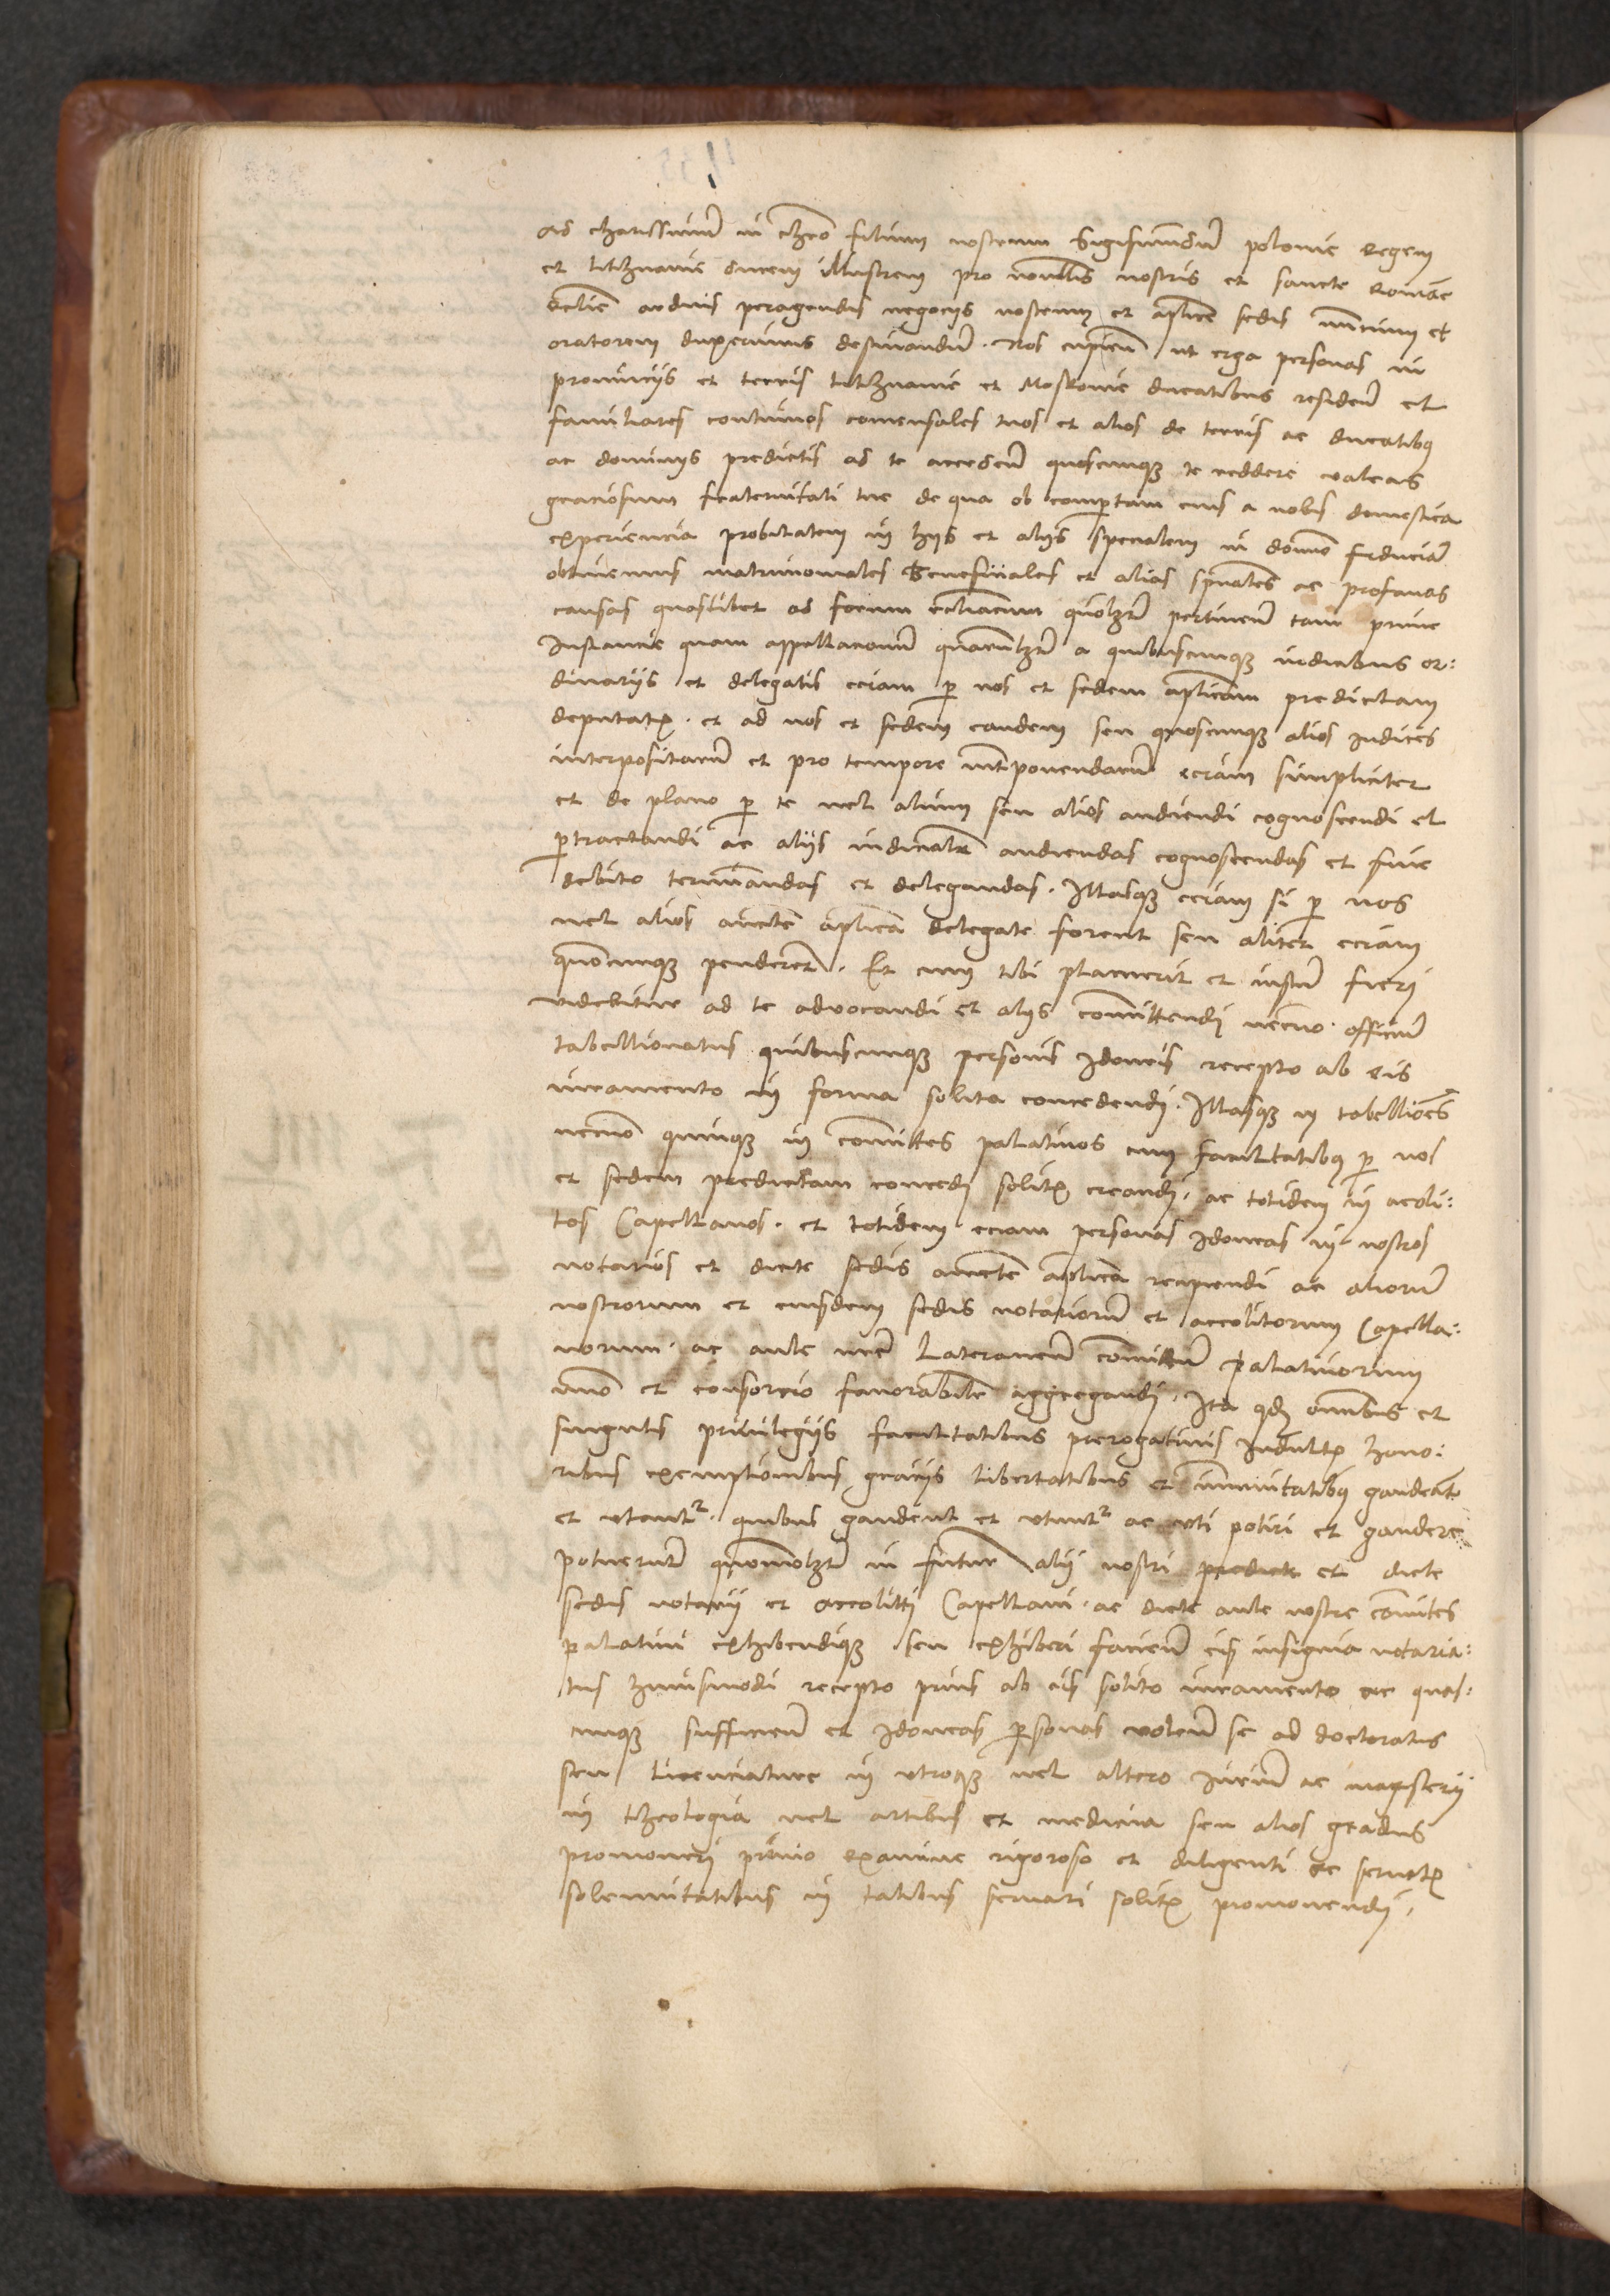 ad charissimū in chro filium nostrum Sigismundū polonie Regem
et litthuanie ducem illustrem pro nonnullis nostris et sancte Romāe
Ecclie arduis peragendis negocijs nostrum et aplice sedis nuncium et
oratorem duxerimus destinandū. Nos cupien̄ ut erga personas in
prouincijs et terris litthuanie et Moskouie ducatibus residen̄ et
familiares continuos comensales tuos et alios de terris ac ducatibꝫ
ac dominijs predictis ad te acceden̄ quoscumqꝫ te reddere ualeas
graciosum fraternitati tue de qua ob compertam eius a nobis domestica
experiencia probitatem in hijs et alijs specialem in domō fiduciā
obtinemus matrimoniales Beneficiales et alias spuales ac profanas
causas quaslibet ad forum eccliacum quolꝫt pertinen̄ tam prime
Instancie quam appellacionū quarūlꝫt a quibuscumqꝫ iudicibus or:
dinarijs et delegatis eciam ꝑ nos et sedem aplicam predictam
deputatꝫ. et ad nos et sedem eandem seu quoscumqꝫ alios Iudices
interpositarū et pro tempore int̄ponendarū eciam simpliciter
et de plano ꝑ te uel alium seu alios audiendi cognoscendi et
ꝑtractandi ac alijs iudicialr audiendas cognoscendas et fine
debito terminandas et delegandas. Illasqꝫ eciam si ꝑ nos
uel alios aucte aplica delegate forent seu aliter eciam
quōcumqꝫ penderet. Et cum tibi placuerit et iustū fieri
uidebitur ad te aduocandi et alijs cōmittendi necnō officiū
tabellionatus quibuscumqꝫ personis Idoneis recepto ab eis
iuramento in forma solita concedendi. Illasqꝫ in tabelliōes
necnō quinqꝫ in cōmittes palatinos cum facultatibꝫ ꝑ nos
et sedem predictam concedi solitꝫ creandi. ac totidem in acoli:
tos Capellanos. et totidem eciam personas Idoneas in nostros
notarios et dicte sedis aucte aplica recipiendi ac aliorū
nostrorum et eiusdem sedis notariorū et accolitorum Capella:
norum. ac aule nrē Lateranen̄ cōmittū palatinorum
nūo et consorcio fauorabile aggregandi. Ita qd omnibus et
singulis priuilegijs facultatibus prerogatiuis Indultꝫ hono:
ribus exemptionibus gracijs libertatibus et immunitatibꝫ gaudeāt
et utantr. quibus gaudent et utuntr ac uti potiri et gaudere
potuerunt quomolꝫt in futur̄ alij nostri predicte et dicte
sedis notarij et accoliti Capellani. ac dicte aule nostre cōmites
palatini exhibendiqꝫ seu exhiberi facien̄ eis insignia notaria:
tus huiusmodi recepto prius ab eis solito iuramento ac quas:
cumqꝫ sufficien̄ et Idoneas ꝑsonas uolen̄ se ad doctoratus
seu licenciature in utroqꝫ uel altero iurium ac magisterij
in theologia uel artibus et medicina seu alios gradus
promoueri preuio examine rigoroso et diligenti ac seruatꝫ
solemnitatibus in talibus seruari solitꝫ promouendi.